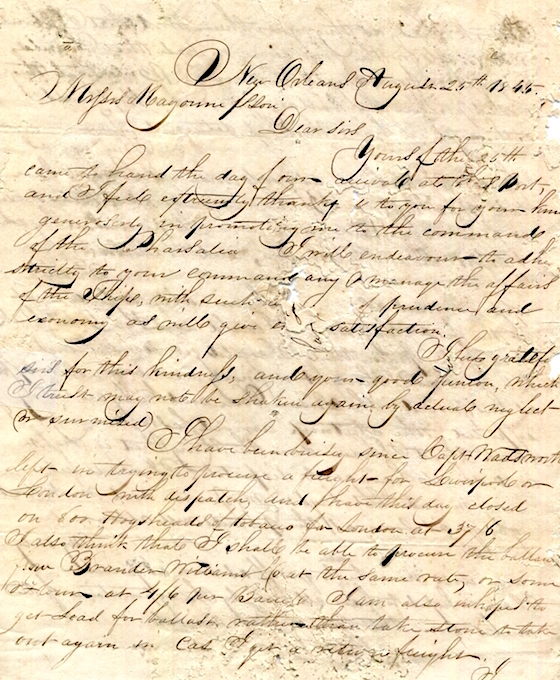 New Orleans August 25th 1845.
Messrs Magoun & Son
Dear sirs
Yours of the 25th
came to hand the day of our arrival at this Port,
and I feel extremely thankful to you for your kind
generosity in promoting me to the command
of the Pharsalia I will endeavour to adhe
strictly to your command any & manage the affairs
of the Ships, with such of prudence and
economy as will give satisfaction.
I feel grateful
sirs for this kindness, and your good opinion, which
I trust may not be shaken again by actual neglect
or surmised
I have been busy since Capt Wadsworth
left in trying to procure a freight for Liverpool or
London with dispatch, and I have this day closed
on 600 Hogsheads of tobacco for London at 37/6
I also think that I shall be able to procure the ballance
from Brander Williams Co at the same rate, or some
Flour at 4/6 per Barrel. I am also in hopes to
get Lead for ballast, rather than take stone to take
out again in Cas I get a return freight.
I